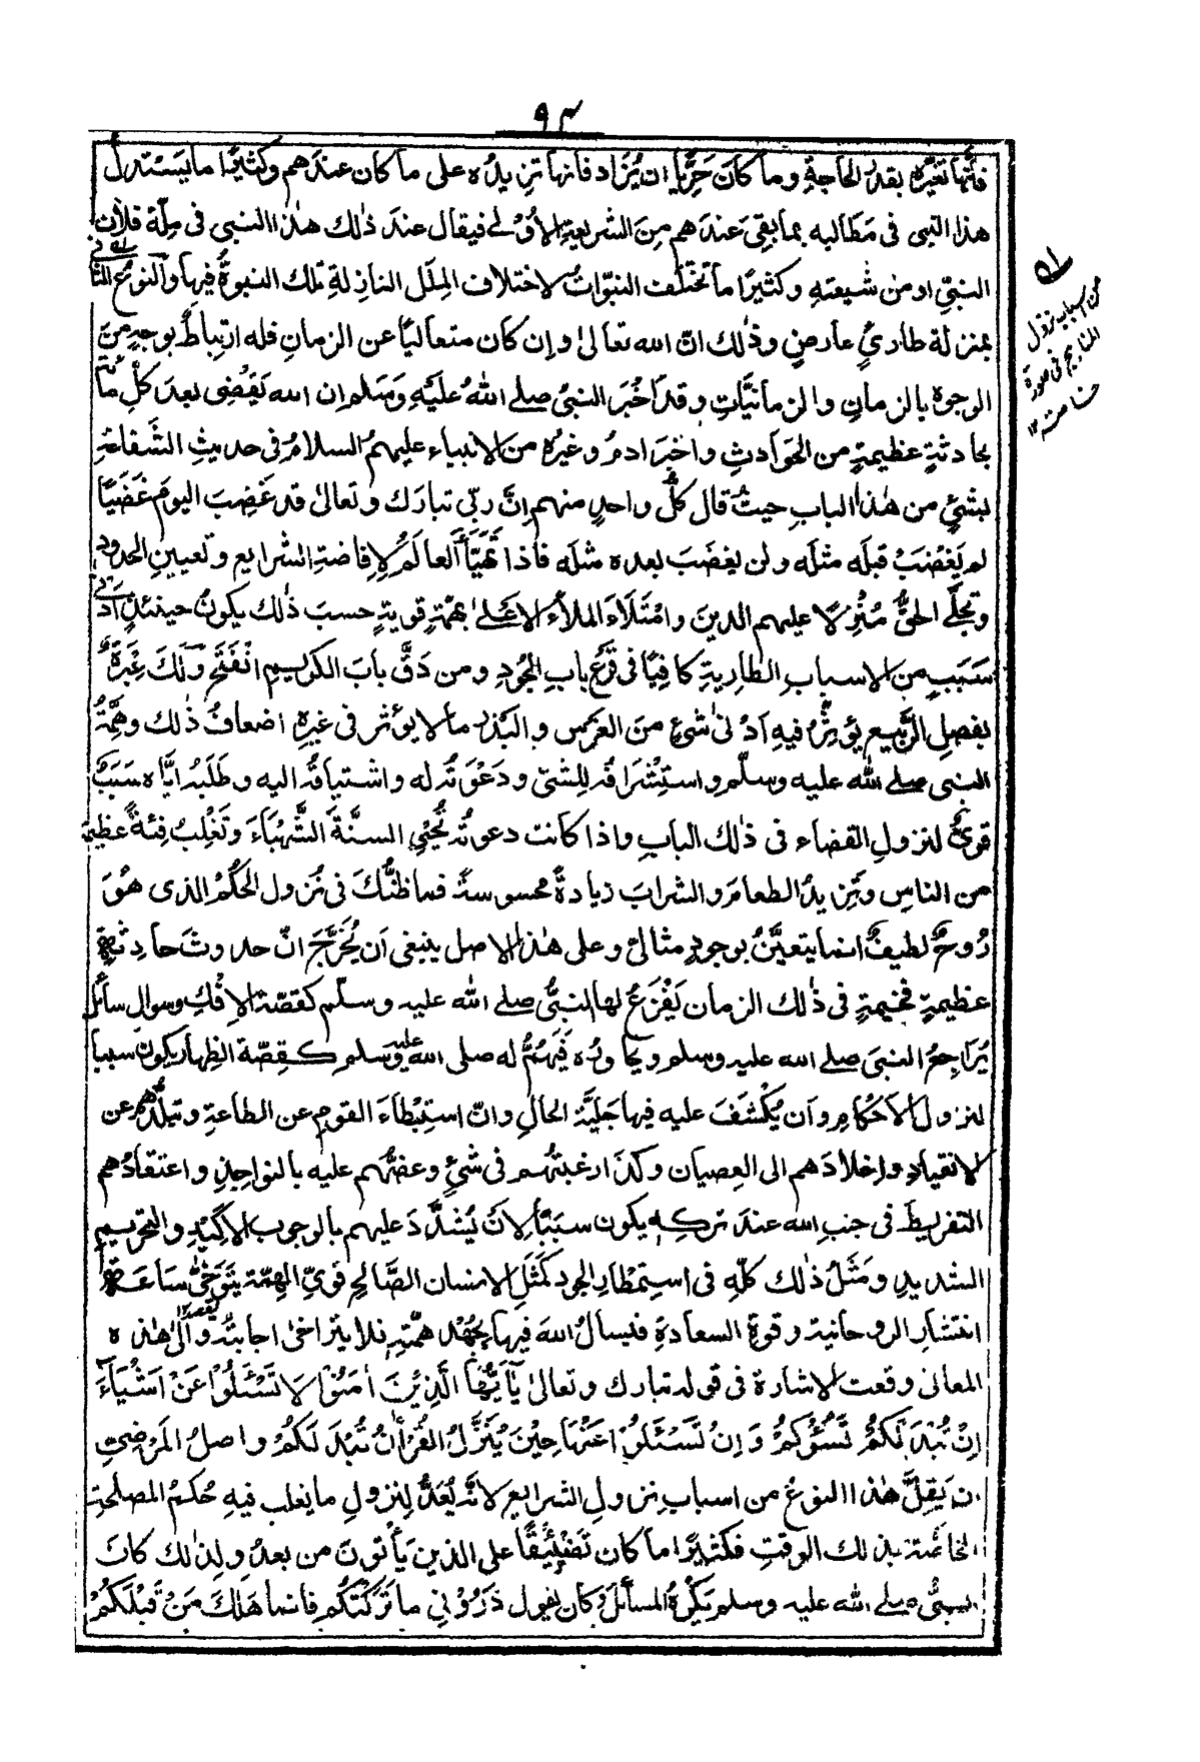 ۹۳
فإنها تغيّره بقدر الحاجةِ وما كان حَرِيًّا ان يُزاد فانها تزيدُه على ما كان عندهم وكثيرًا ما يستدلّ
هذا النبى فى مَطَالبه بما بَقِيَ عندهم مِنَ الشريعةِ الأُوْلٰى فيقال عند ذٰلك هٰذا النبى فى مِلّة فلان
النبيّ او من شيعتهِ وكثيرًا ما تختلف النبوّاتُ لاختلاف المِلَلِ النازلةِ تلك النبوةُ فيها والنوعُ الثانى
بمنزلة طاريٍ عارضٍ وذٰلك انّ الله تعالىٰ وإن كان متعاليًا عن الزمانِ فله ارتباطٌ بوجهٍ مِنَ
الوجوه بالزمانِ والزمانيَّاتِ وقد أخبَرَ النبىُّ صلے اللهُ عليهِ وسَلم ان الله يَقْضِى بعد كلّ مائة
بحادثةٍ عظيمةٍ من الحَوادثِ واخبَرَ ادمُ وغيرُه من الانبياء عليهمُ السلامُ فى حديثِ الشَّفاعةِ
بشئٍ من هٰذا البابِ حيثُ قال كلُّ واحدٍ منهم انَّ ربّى تبارك وتعالىٰ قد غَضِبَ اليومَ غَضَبًا
لم يَغْضَبْ قبلَه مثلَه ولن يغضَبَ بعده مثلَه فاذا تَهَيَّأَ العالَمُ لِإفاضةِ الشرايع وتعيينِ الحدودِ
وتجلّى الحقُّ مُنْزِلًا عليهم الدينَ وامْتَلَاءَ الملأءُ الاعلىٰ بهمّةٍ قويةٍ حسبَ ذٰلك يكونُ حينئذٍ أدنى
سَبَبٍ من الاسبابِ الطاريةِ كافيًا فى قَرْعِ بابِ الجُودِ ومن دَقَّ بابَ الكريمِ انْفَتَحَ ولَكَ عِبرةٌ
بفصلِ الرَّبيع يؤثِّرُ فيهِ أدْنىٰ شئٍ من الغَرْسِ والبَذْرِ ما لا يؤثر فى غيرِهِ اضعافُ ذٰلك وهِمَّةُ
النبى صلے الله عليه وسلّم واستِشْرافُه لِلشئ ودَعْوَتُه له واشتياقُه اليه وطَلَبُه ايّاه سَبَبٌ
قوىٌّ لنزولِ القضاءِ فى ذٰلك البابِ واذا كانت دعوتُه تُحْيِى السنَّةَ الشَّهْبَاءَ وتَغْلِبُ فِئةً عظيمة
من الناسِ وتَزِيدُ الطعامَ والشرابَ زيادةً محسوسةً فما ظنُّكَ فى نُزولِ الحُكمِ الذى هُوَ
رُوحٌ لطيفٌ انما يتعيَّنُ بوجودٍ مثالىّ وعلى هٰذا الاصل ينبغى أن يُخَرَّجَ انّ حدوثَ حادثةٍ
عظيمةٍ فخيمةٍ فى ذٰلك الزمانِ يَفْزَعُ لها النبىُّ صلے الله عليه وسلّم كقصّة الإفْكِ وسوال سأئل
يُراجِعُ النبىَ صلے الله عليه وسلم ويحاورُه فَيَهُمُّ له صلى الله عليه وسلم كقِصّة الظِهارِ يكون سببا
لنزول الاحْكام وأن يُكْشَفَ عليه فيها جَليّةُ الحالِ وانّ استِبْطاءَ القوم عن الطاعةِ وتبلُّدَهم عن
الانقيادِ واِخلادَهم الى العِصيانِ وكذا رغبتُهم فى شئٍ وعضُّهم عليه بالنواجذِ واعتقادُهم
التفريطَ فى جنبِ الله عند تركِهِ يكون سبَبًا لِأن يُشدَّدَ عليهم بالوجوب الأكِيْدِ والتحريمِ
الشديدِ ومَثَلُ ذٰلك كلِّهِ فى استِمْطارِ الجودِ كَمَثَلِ الانسانِ الصَّالحِ قوىِّ الهِمّة يَتَوَخّىٰ سَاعةَ
انتشارِ الروحانية وقوةِ السعادةِ فيسألُ الله فيها بجُهْدِ همّتِه فلا يتراخىٰ اجابتُه والىٰ هٰذه
المعانى وقعت الاشارة فى قوله تبارك وتعالىٰ يٰٓاَيُّهَا الَّذِيْنَ اٰمَنُوْا لَا تَسْئَلُوْا عَنْ اَشْيَآءَ
اِنْ تُبْدَ لَكُمْ تَسُؤْكُمْ وَاِنْ تَسْئَلُوْا عَنْهَا حِيْنَ يُنَزَّلُ القُرْاٰنُ تُبْدَ لَكُمْ واصلُ المَرْضِيّ
ان يَقِلَّ هٰذا النوعُ من اسبابِ نزولِ الشرايعِ لانّه يُعَدُّ لِنزولِ ما يغلب فيهِ حُكمُ المصلحةِ
الخاصّة بذلك الوقتِ فكثيرًا ما كان تَضْيِيْقًا على الذين يَأتونَ من بعدُ ولِذٰلك كانَ
النبىُّ صلے الله عليه وسلم يَكْرَهُ المسائلَ وكان يقول ذَرُوْنِي ما تَرَكْتُكُم فانما هَلَكَ مَنْ قَبْلَكُمْ
من اسباب نزول
المناهج فى صورة
خاصة ۱۲